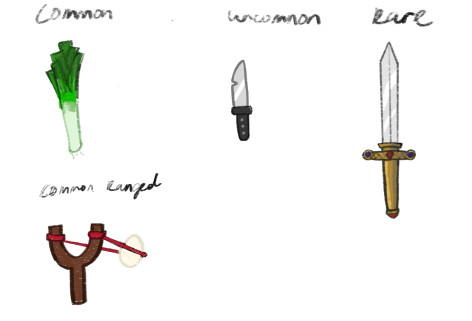 Common
uncommon
Rare
Common Ranged